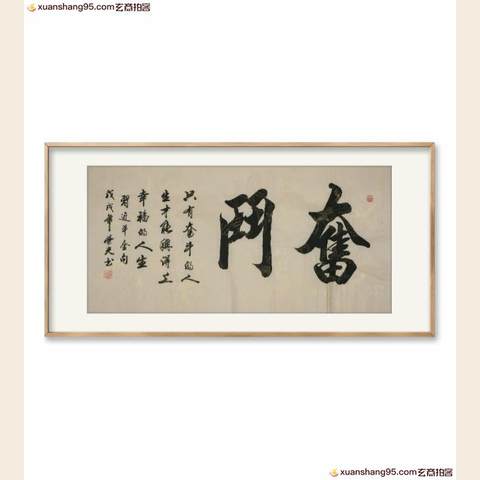 xuanshang95.com玄商拍客
奮鬥
只有奮斗的人
生才能興上
幸福的人生
習近平金句
戊戌年天书
xuanshang95.com玄商拍客